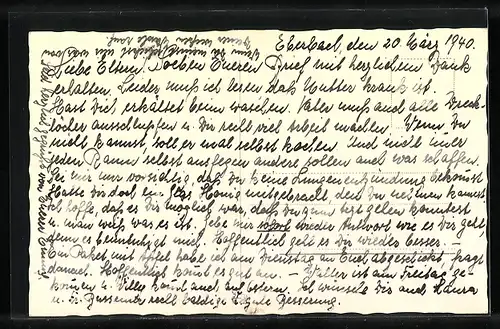 Eberbach, den 20. März 1940.
Liebe Eltern! Soeben Eueren Brief mit herzlichem Dank
erhalten. Leider muß ich lesen daß Mutter krank ist.
Hast Dich erkältet beim waschen. Vater muß auch alle Dreck-
löcher ausschlupfen u. Dir recht viel Arbeit machen. Wenn Du
nicht kannst, soll er mal selbst kochen. Und nicht immer
jeden Raum selbst ausfegen andere sollen auch was schaffen.
Sei mir nur vorsichtig, daß Du keine Lungenentzündung bekommst
Hatte Dir doch ein Glas Honig mitgebracht, den Du nehmen kannst.
Ich hoffe, daß es Dir möglich war, daß Du zum Arzt gehen konntest
u. man weiß was es ist. Gebe mir sofort wieder Antwort wie es Dir geht,
denn es beunruhigt mich. Hoffentlich geht es Dir wieder besser. —
Ein Paket mit Äpfel habe ich am Dienstag an Euch abgeschickt fragt
darnach. Hoffentlich kommt es gut an. — Walter ist am Freitag ge-
kommen u. Willi kommt auch auf Ostern. Ich wünsche Dir auch
u. recht baldige gute Besserung.